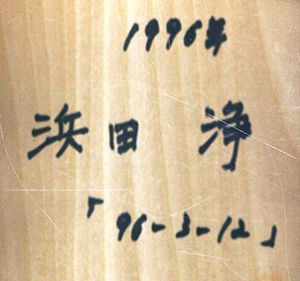 1996年
浜田 浄
「96-3-12」